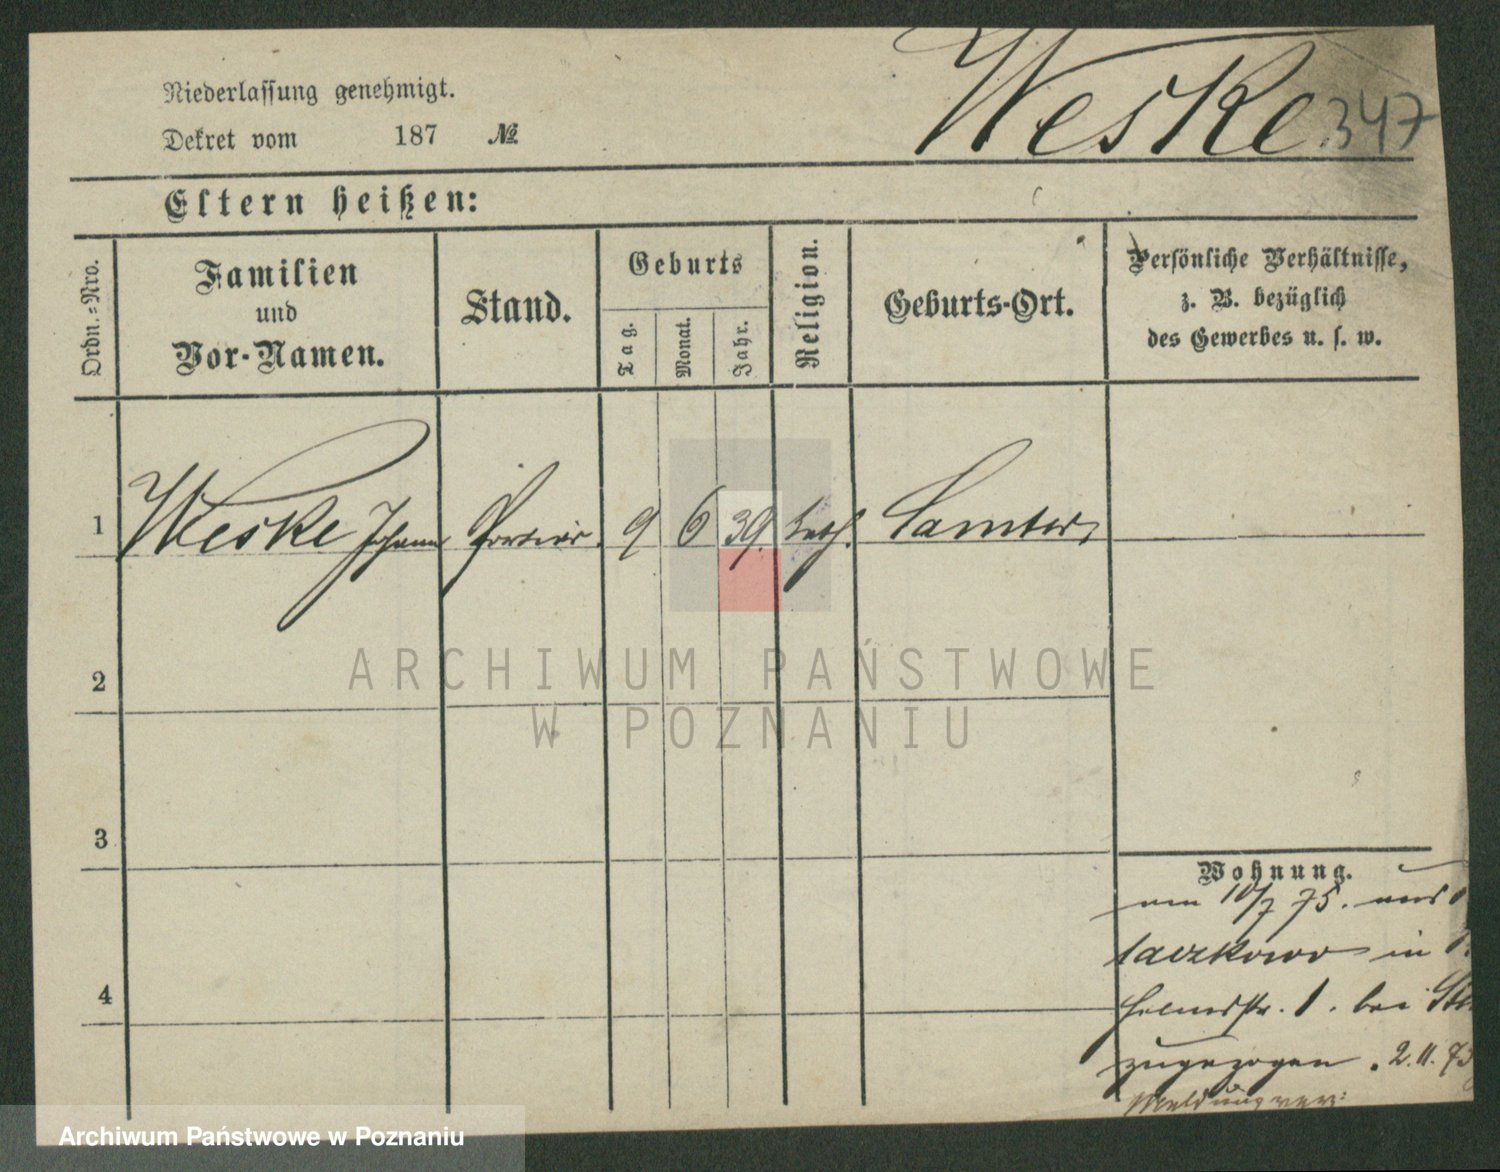 Weske 347
Niederlassung genehmigt.
Dekret vom 187 №
Eltern heißen:
Ordn.-Nro.
Familien
und
Vor-Namen.
Stand.
Geburts
Tag.
Monat.
Jahr.
Religion.
Geburts-Ort.
Persönliche Verhältnisse,
z. B. bezüglich
des Gewerbes u. s. w.
1 Weske Johann Portier 9 6 39. kath. Samter
2
3
4
Wohnung.
am 10/7 75. aus
in
1. bei
zugezogen. 2.11.75
ARCHIWUM PAŃSTWOWE
W POZNANIU
Archiwum Państwowe w Poznaniu